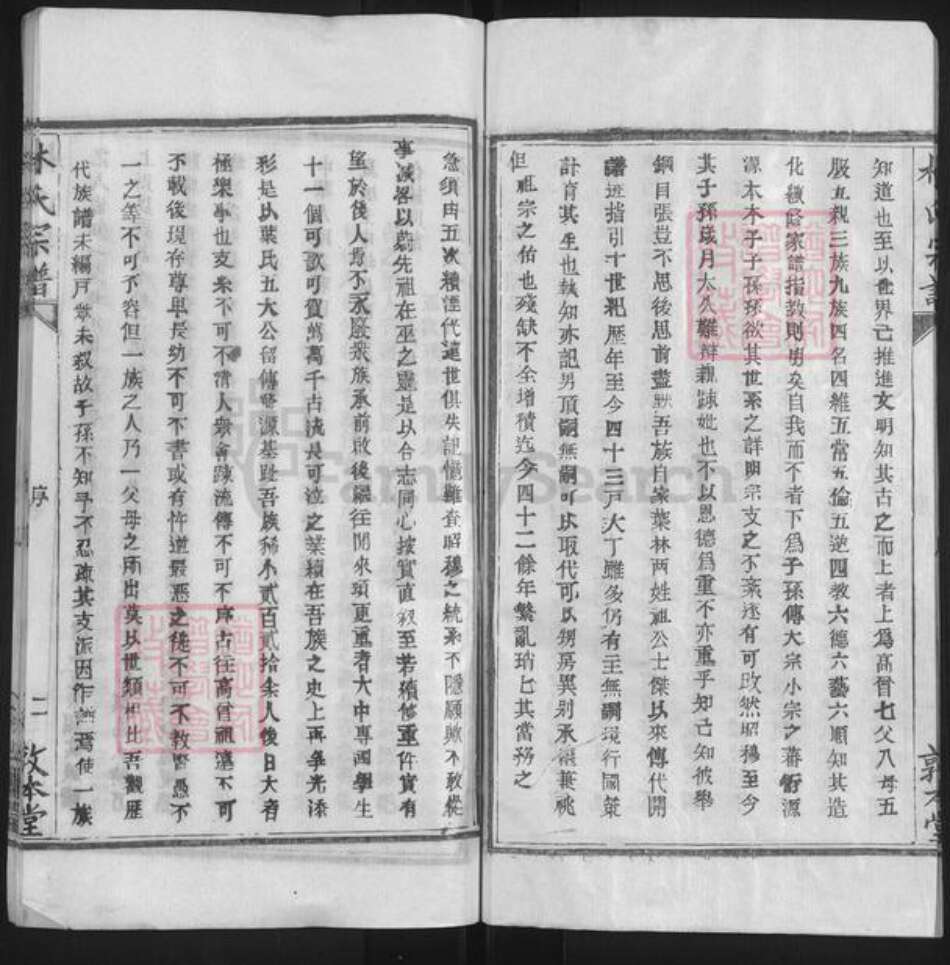 知道也至以世界已推進文明知其古之而上者上為高曾七父八母五
服五親三族九族四名四維五常五倫五逆四教六德六藝六順知其造
化額路家譜指教則男矣自我而不者下為子孫傳大宗小宗之蕃衍源
源木本子子孫孫欲其世系之詳明宗支之不紊遂有可攷然昭穆至今
其子孫歲月太久難辯親疎她也不以恩德為重不亦重乎知己知彼舉
綱目張豈不思後思前盡默吾族自家葉林两姓祖公士傑以來傳代開
譜班指引十世紀歷年至今四十三戸大丁雖多仍有主無嗣現行國策
計育其生也孰知亦記男頂嗣無嗣可以取代可以甥房異别承讓兼祧
但祖宗之佑也殘缺不全增積迄今四十二餘年繁亂瑣七其當務之
急須由五次積湮代遠世俱失記憶難查昭穆之統系不隱願欺不敢從
事滅畧以蔚先祖在巫之靈是以合志同心按實直叙至若積修重作實有
望於後人焉不永嚴張族承前啟後繼往開來頭更重者大中專國學生
十一個可歌可賀萬萬千古流長可泣之業績在吾族之史上再爭光添
彩是以葉氏五大公留傳發源基趾吾族稀小貳百貳拾余人後日大者
極樂事也支系不可不清人衆會踈流傳不可不序古往高曾祖遠不可
不載後現在尊卑長幼不可不書或有忤道最惡之徒不可不教警愚不
一之等不可不容但一族之人乃一父母之所出莫以世類相比吾觀歷
代族譜未編戸來未叙故子孫不知乎不忍疎其支派因作譜焉使一族
林氏宗譜
序
二
敦本堂